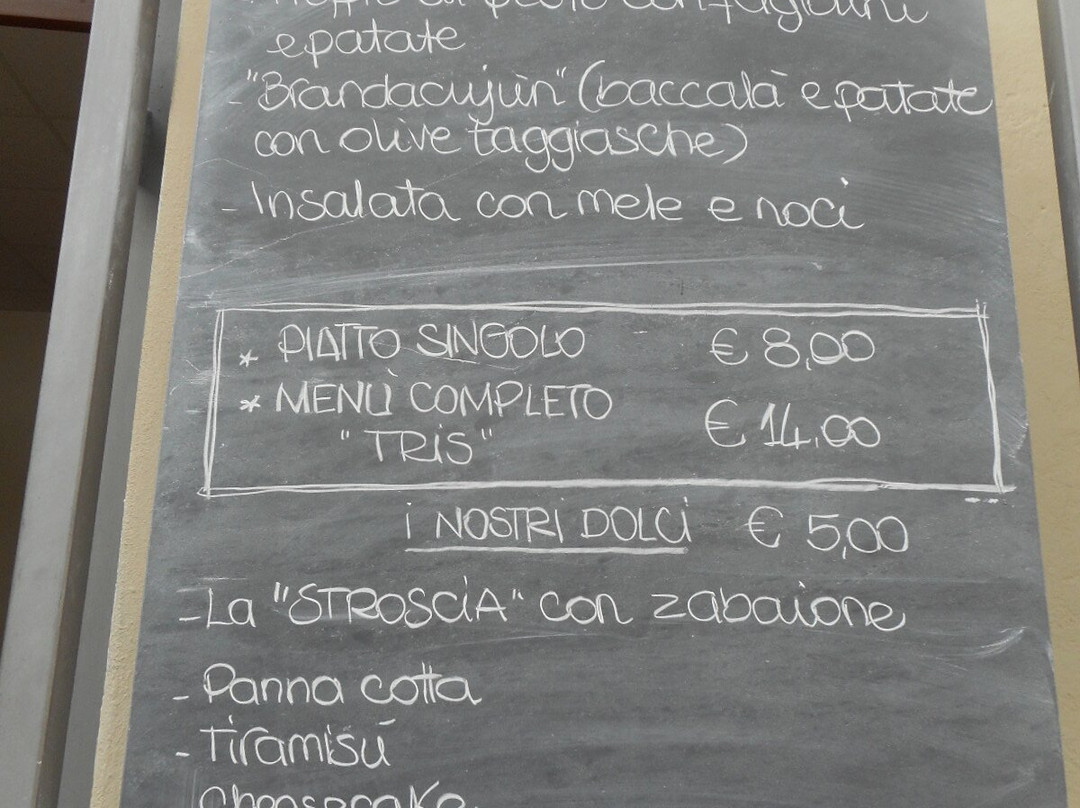 Troffie al pesto con fagiolini
e patate
- "Brandacujùn" (baccalà e patate
con olive taggiasche)
- Insalata con mele e noci
* PIATTO SINGOLO € 8,00
* MENÙ COMPLETO
"TRIS" € 14,00
i NOSTRI DOLCI € 5,00
- La "STROSCIA" con zabaione
- Panna cotta
- Tiramisú
Cheesecake